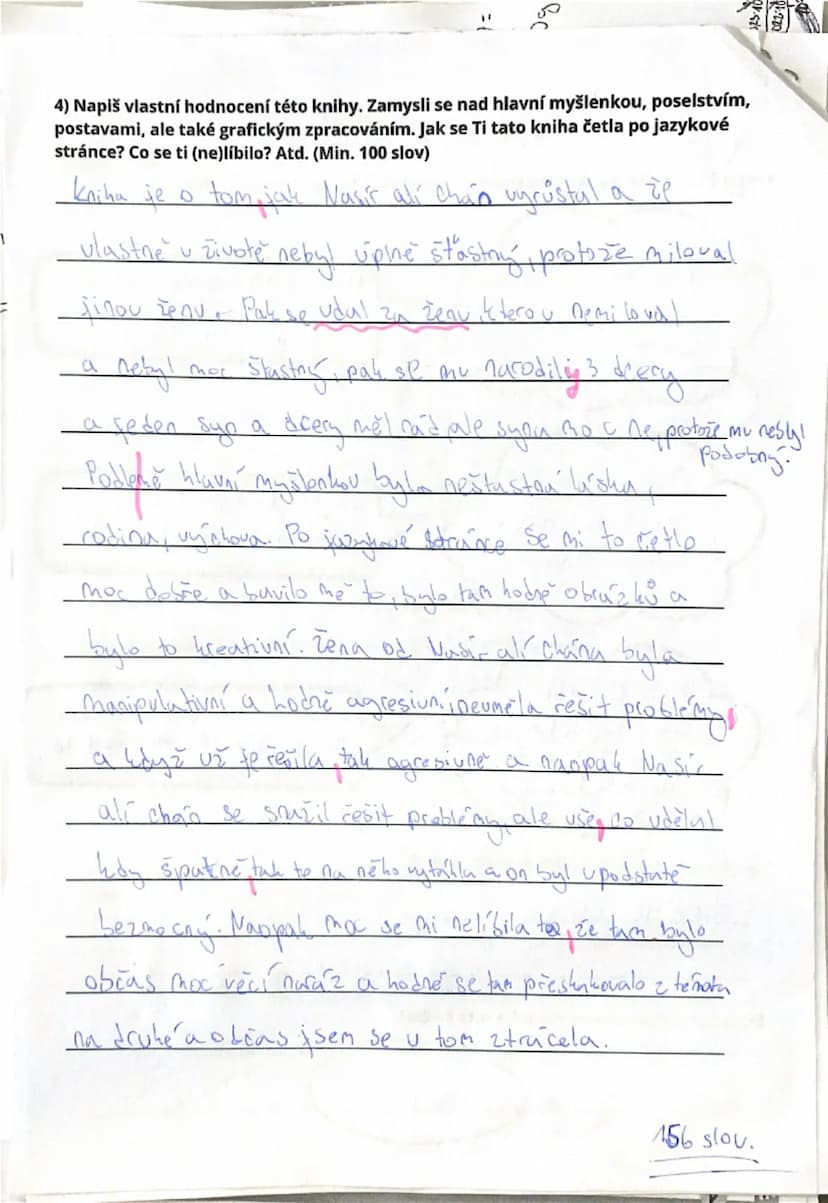 4) Napiš vlastní hodnocení této knihy. Zamysli se nad hlavní myšlenkou, poselstvím,
postavami, ale také grafickým zpracováním. Jak se Ti tato kniha četla po jazykové
stránce? Co se ti (ne)líbilo? Atd. (Min. 100 slov)
kniha je o tom, jak Nasír alí chán vyrůstal a že
vlastně v životě nebyl úplně šťastný, protože miloval
jinou ženu. Pak se vdal za ženu, kterou nemiloval
a nebyl moc štastný, pak se mu narodily 3 dcery
a jeden syn a dcery měl rád, ale syna moc ne, protože mu nebyl
podobný.
Podlemě hlavní myšlenkou byla neštastná láska,
rodina, výchova. Po jazykové stránce se mi to četlo
moc dobře a bavilo mě to, bylo tam hodně obrázků a
bylo to kreativní. Žena od Nasír alí chána byla
manipulativní a hodně agresivní, neuměla řešit problémy,
a když už je řešila, tak agresivně a naopak Nasír
alí chán se snažil řešit problémy, ale vše, co udělal
kdy špatně, tak to na něho vytáhla a on byl vpodstatě
bezmocný. Naopak moc se mi nelíbila to, že tam bylo
občas moc věcí naráz a hodně se tam přeskakovalo z tématu
na druhé a občas jsem se v tom ztrácela.
156 slov.